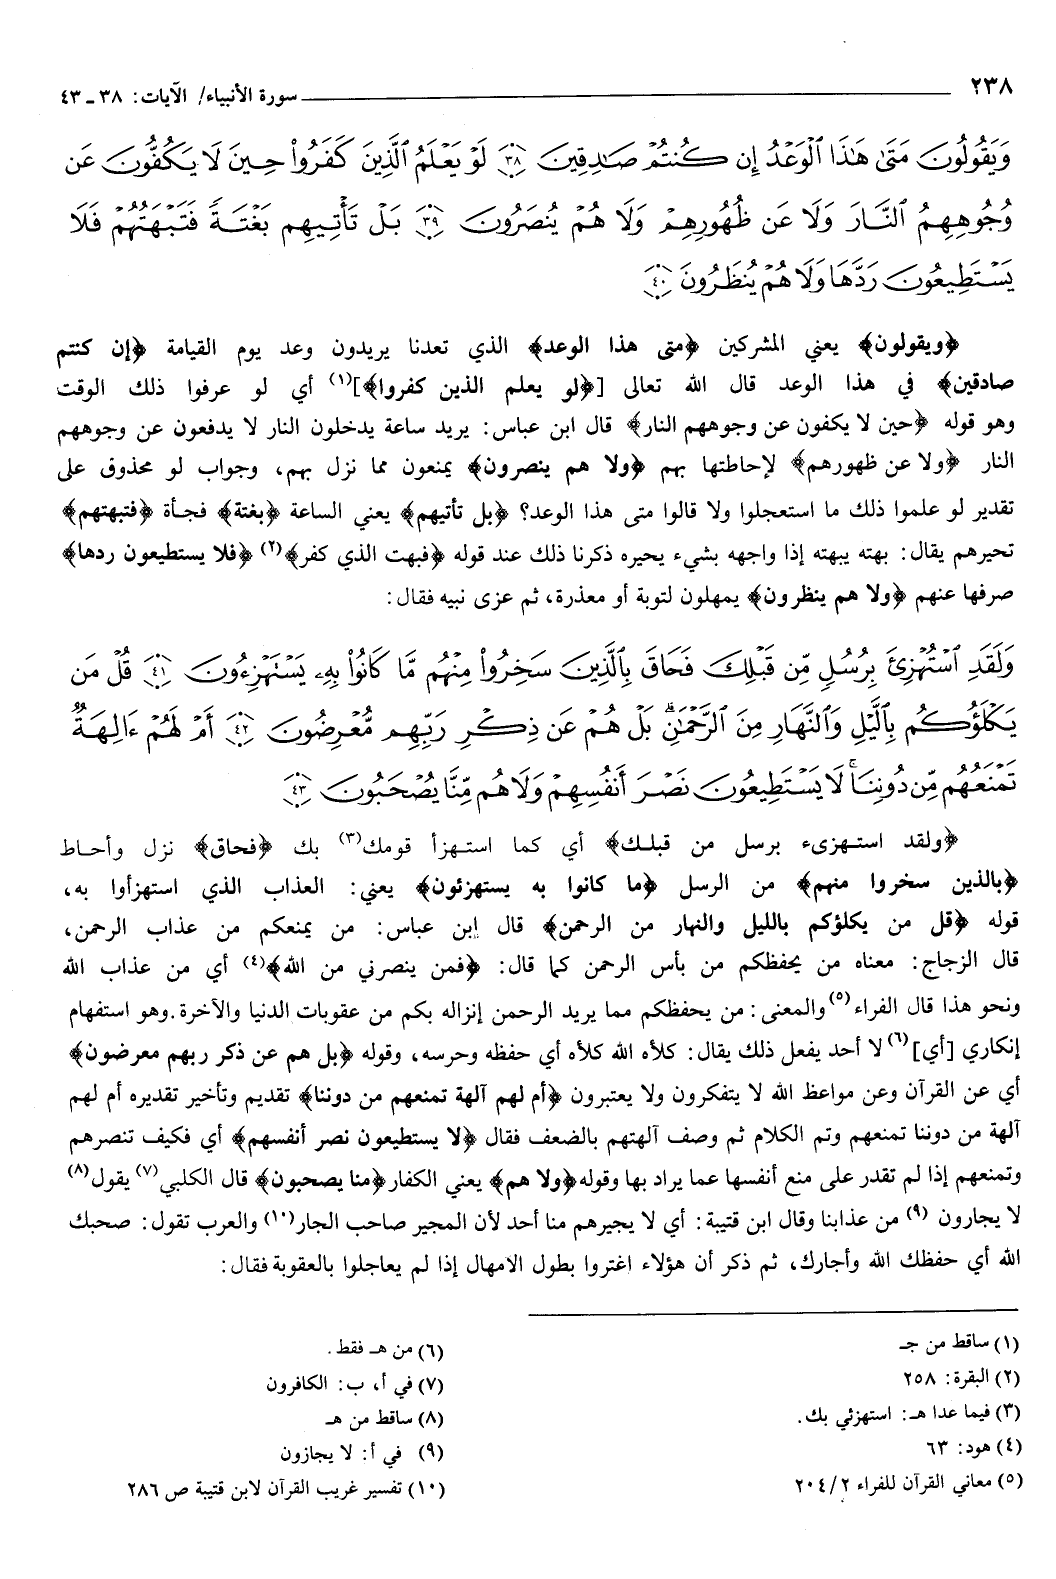 ٢٣٨ سورة الأنبياء/ الآيات: ٣٨ ـ ٤٣
وَيَقُولُونَ مَتَىٰ هَٰذَا ٱلْوَعْدُ إِن كُنتُمْ صَٰدِقِينَ ٣٨ لَوْ يَعْلَمُ ٱلَّذِينَ كَفَرُوا۟ حِينَ لَا يَكُفُّونَ عَن
وُجُوهِهِمُ ٱلنَّارَ وَلَا عَن ظُهُورِهِمْ وَلَا هُمْ يُنصَرُونَ ٣٩ بَلْ تَأْتِيهِم بَغْتَةً فَتَبْهَتُهُمْ فَلَا
يَسْتَطِيعُونَ رَدَّهَا وَلَا هُمْ يُنظَرُونَ ٤٠
﴿ويقولون﴾ يعني المشركين ﴿متى هذا الوعد﴾ الذي تعدنا يريدون وعد يوم القيامة ﴿إن كنتم
صادقين﴾ في هذا الوعد قال الله تعالى [﴿لو يعلم الذين كفروا﴾](١) أي لو عرفوا ذلك الوقت
وهو قوله ﴿حين لا يكفون عن وجوههم النار﴾ قال ابن عباس: يريد ساعة يدخلون النار لا يدفعون عن وجوههم
النار ﴿ولا عن ظهورهم﴾ لإحاطتها بهم ﴿ولا هم ينصرون﴾ يمنعون مما نزل بهم، وجواب لو محذوف على
تقدير لو علموا ذلك ما استعجلوا ولا قالوا متى هذا الوعد؟ ﴿بل تأتيهم﴾ يعني الساعة ﴿بغتة﴾ فجأة ﴿فتبهتهم﴾
تحيرهم يقال: بهته يبهته إذا واجهه بشيء يحيره ذكرنا ذلك عند قوله ﴿فبهت الذي كفر﴾(٢) ﴿فلا يستطيعون ردها﴾
صرفها عنهم ﴿ولا هم ينظرون﴾ يمهلون لتوبة أو معذرة، ثم عزى نبيه فقال:
وَلَقَدِ ٱسْتُهْزِئَ بِرُسُلٍ مِّن قَبْلِكَ فَحَاقَ بِٱلَّذِينَ سَخِرُوا۟ مِنْهُم مَّا كَانُوا۟ بِهِۦ يَسْتَهْزِءُونَ ٤١ قُلْ مَن
يَكْلَؤُكُم بِٱلَّيْلِ وَٱلنَّهَارِ مِنَ ٱلرَّحْمَٰنِ ۗ بَلْ هُمْ عَن ذِكْرِ رَبِّهِم مُّعْرِضُونَ ٤٢ أَمْ لَهُمْ ءَالِهَةٌ
تَمْنَعُهُم مِّن دُونِنَا ۚ لَا يَسْتَطِيعُونَ نَصْرَ أَنفُسِهِمْ وَلَا هُم مِّنَّا يُصْحَبُونَ ٤٣
﴿ولقد استهزىء برسل من قبلك﴾ أي كما استهزأ قومك(٣) بك ﴿فحاق﴾ نزل وأحاط
﴿بالذين سخروا منهم﴾ من الرسل ﴿ما كانوا به يستهزئون﴾ يعني: العذاب الذي استهزأوا به،
قوله ﴿قل من يكلؤكم بالليل والنهار من الرحمن﴾ قال إبن عباس: من يمنعكم من عذاب الرحمن،
قال الزجاج: معناه من يحفظكم من بأس الرحمن كما قال: ﴿فمن ينصرني من الله﴾(٤) أي من عذاب الله
ونحو هذا قال الفراء(٥) والمعنى: من يحفظكم مما يريد الرحمن إنزاله بكم من عقوبات الدنيا والآخرة.وهو استفهام
إنكاري [أي](٦) لا أحد يفعل ذلك يقال: كلأه الله كلأه أي حفظه وحرسه، وقوله ﴿بل هم عن ذكر ربهم معرضون﴾
أي عن القرآن وعن مواعظ الله لا يتفكرون ولا يعتبرون ﴿أم لهم آلهة تمنعهم من دوننا﴾ تقديم وتأخير تقديره أم لهم
آلهة من دوننا تمنعهم وتم الكلام ثم وصف آلهتهم بالضعف فقال ﴿لا يستطيعون نصر أنفسهم﴾ أي فكيف تنصرهم
وتمنعهم إذا لم تقدر على منع أنفسها عما يراد بها وقوله﴿ولا هم﴾ يعني الكفار﴿منا يصحبون﴾ قال الكلبي(٧) يقول(٨)
لا يجارون (٩) من عذابنا وقال ابن قتيبة: أي لا يجيرهم منا أحد لأن المجير صاحب الجار(١٠) والعرب تقول: صحبك
الله أي حفظك الله وأجارك، ثم ذكر أن هؤلاء اغتروا بطول الامهال إذا لم يعاجلوا بالعقوبة فقال:
(١) ساقط من جـ
(٢) البقرة: ٢٥٨
(٣) فيما عدا هـ: استهزئي بك.
(٤) هود: ٦٣
(٥) معاني القرآن للفراء ٢/ ٢٠٤
(٦) من هـ فقط.
(٧) في أ، ب: الكافرون
(٨) ساقط من هـ
(٩) في أ: لا يجازون
(١٠) تفسير غريب القرآن لابن قتيبة ص ٢٨٦